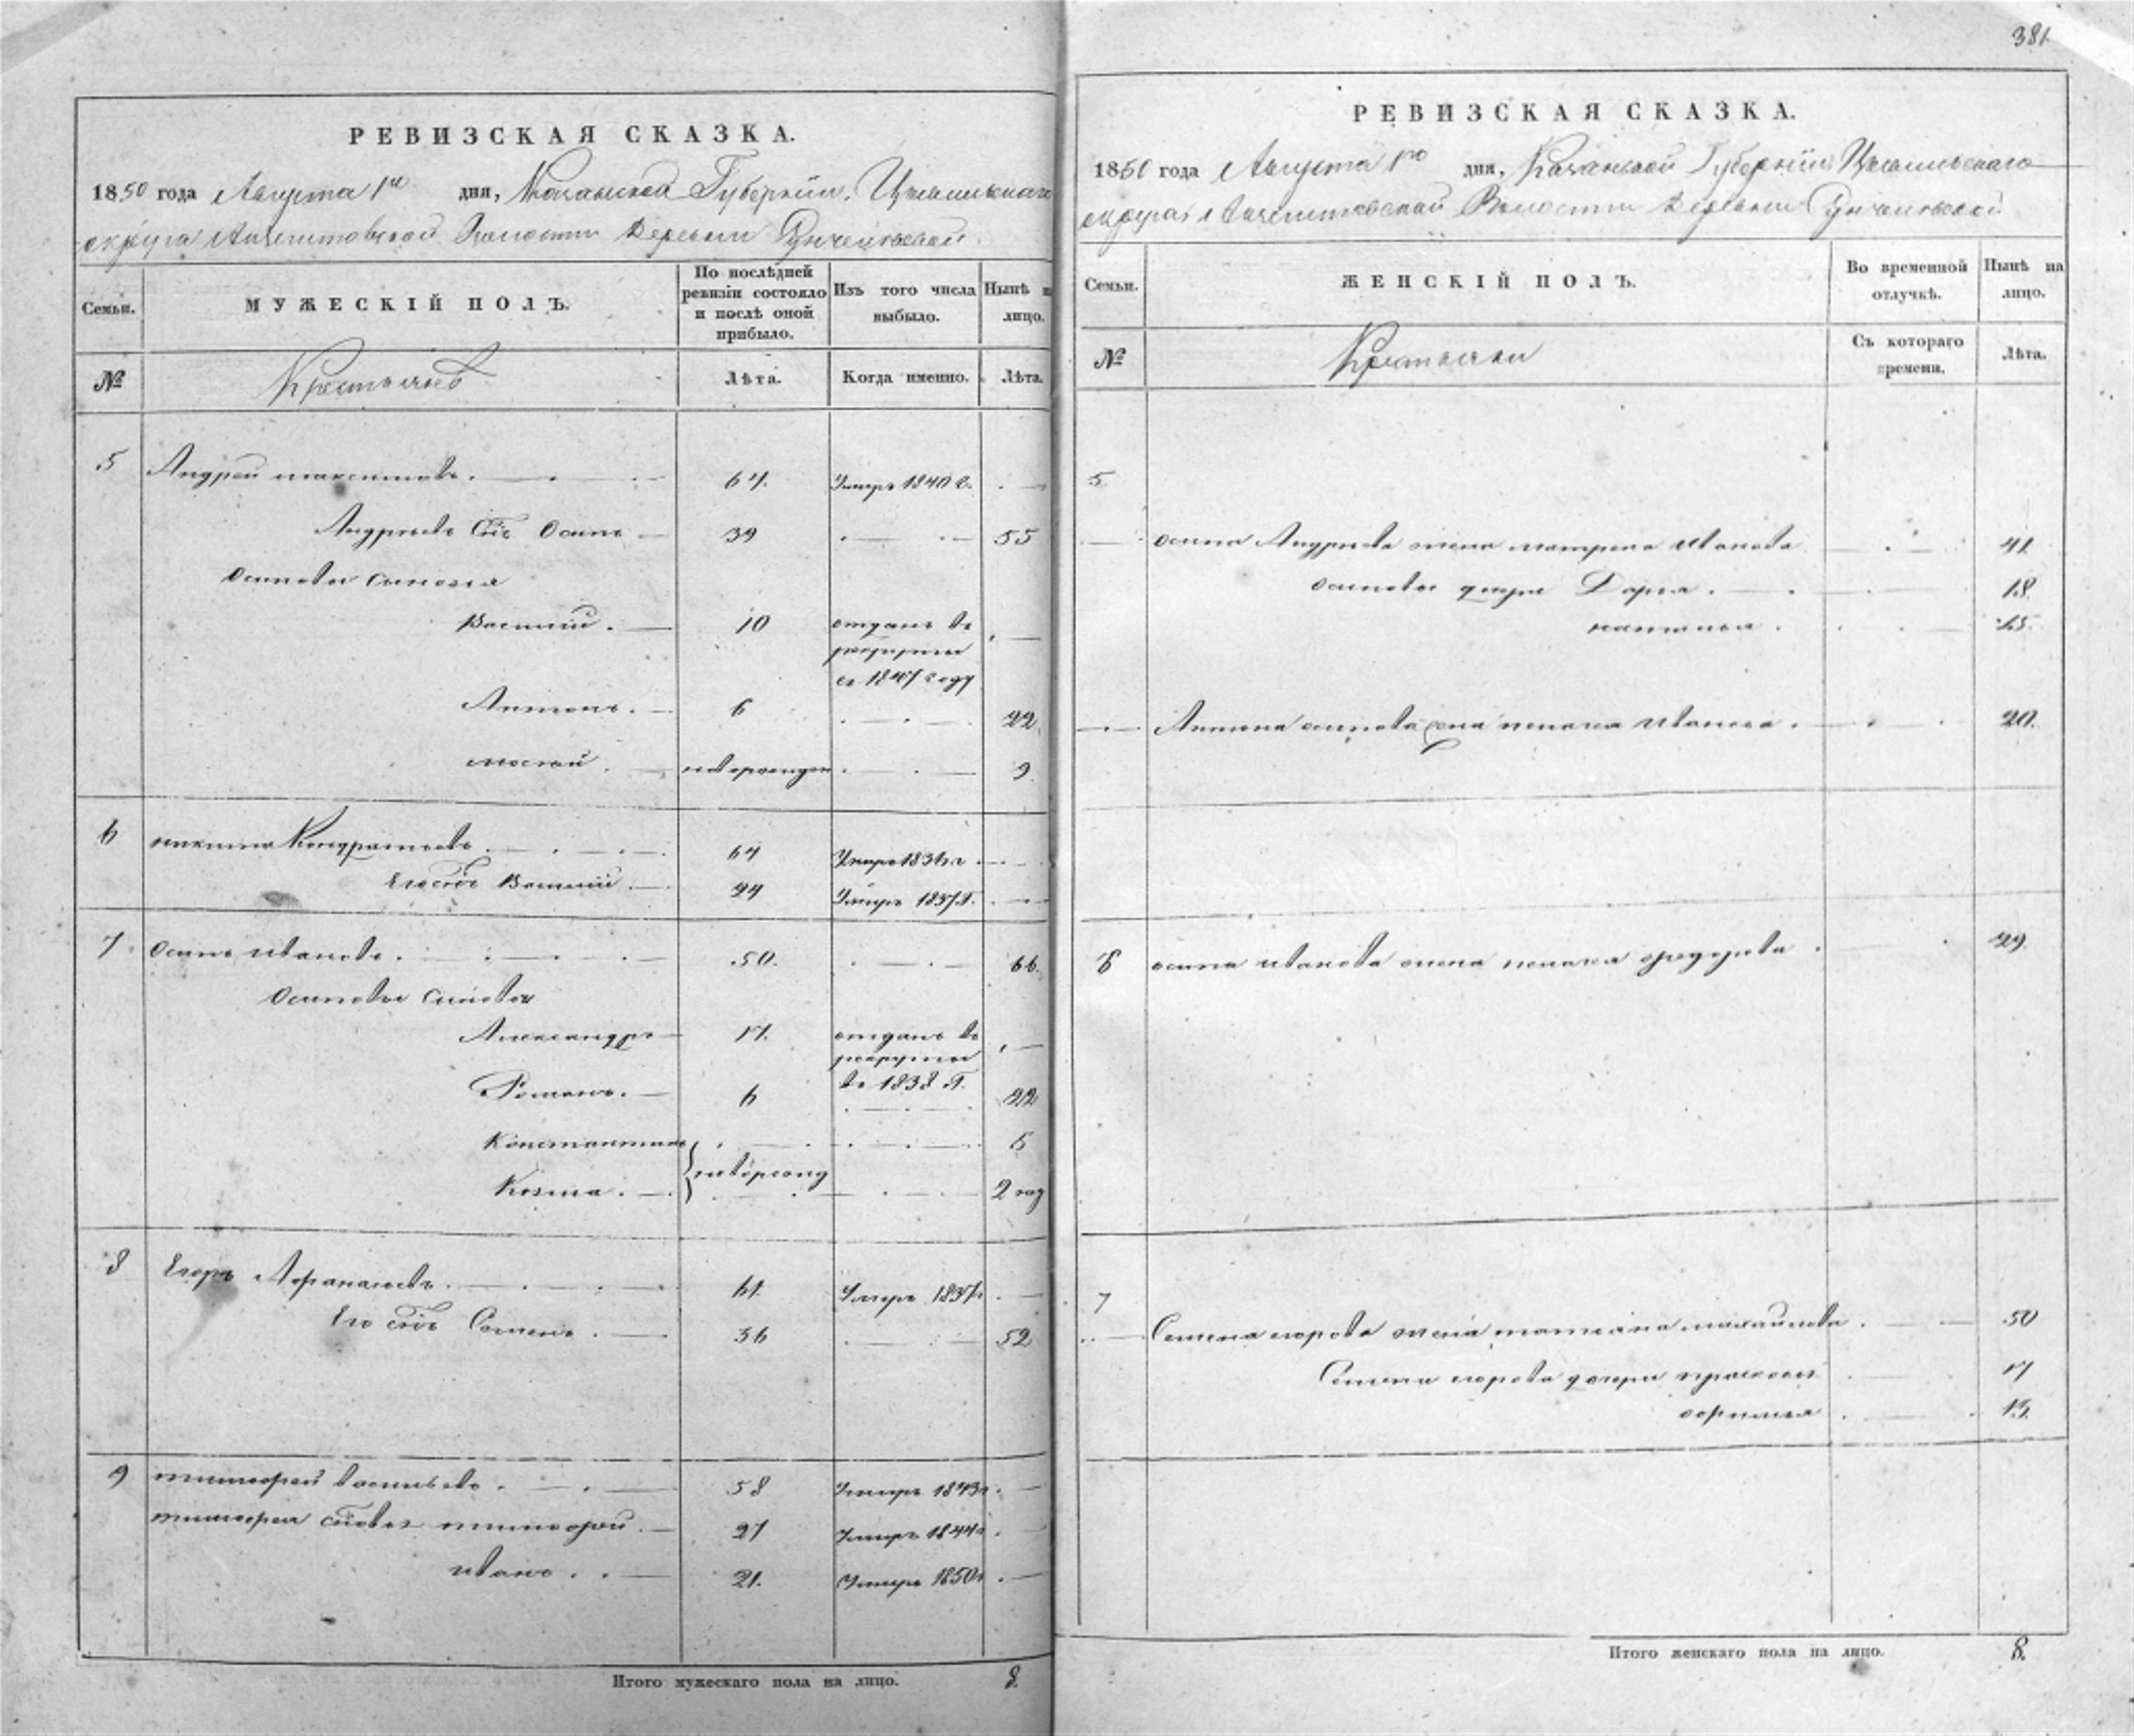 381
РЕВИЗСКАЯ СКАЗКА.
1850 года Августа 1го дня, Казанской Губерніи, Цивильскаго
округа Волости Деревни
Семьи.
МУЖЕСКІЙ ПОЛЪ.
По послѣдней ревизіи состояло и послѣ оной прибыло.
Изъ того числа выбыло.
Нынѣ на лицо.
№
Крестьянъ
Лѣта.
Когда именно.
Лѣта.
5 Андрей Максимовъ. 64. Умеръ 1840 г.
Андреевъ Сынъ Осипъ 39 55
Осиповы сыновья
Василій. 10 отданъ въ
рекруты
въ 1847 году
Антонъ. 6 22.
новорожден 9
6 Никита Кондратьевъ. 64 Умеръ
Его сынъ Василій. 44 Умеръ 1837 г.
7 Осипъ Ивановъ. 50. 66.
Осиповы сыновья
Александръ 17. отданъ въ
рекруты
въ 1838 г.
Романъ. 6 22
Константинъ 5
новорожд
Козма. 2 год
8 Егоръ Афанасьевъ. 61. Умеръ 1837 г.
Его сынъ Семенъ. 36 52
9 Тимофей Васильевъ. 58 Умеръ 1843 г.
Тимофея сыновья Тимофей. 27 Умеръ 1844 г.
Иванъ. 21. Умеръ 1850 г.
Итого мужескаго пола на лицо. 8.
РЕВИЗСКАЯ СКАЗКА.
1850 года Августа 1го дня, Казанской Губерніи Цивильскаго
округа Волости Деревни
Семьи.
ЖЕНСКІЙ ПОЛЪ.
Во временной отлучкѣ.
Нынѣ на лицо.
№
Крестьянки
Съ котораго времени.
Лѣта.
5
Осипа Андреева жена Матрена Иванова 41.
Осиповы дочери Дарья. 18.
Наталья. 15.
Антона Осипова жена Пелагея Иванова. 20.
6 Осипа Иванова жена Пелагея Федорова 49.
7
Семена Егорова жена Татьяна Михайлова. 50
Семена Егорова дочери Прасковья 17
13.
Итого женскаго пола на лицо. 8.